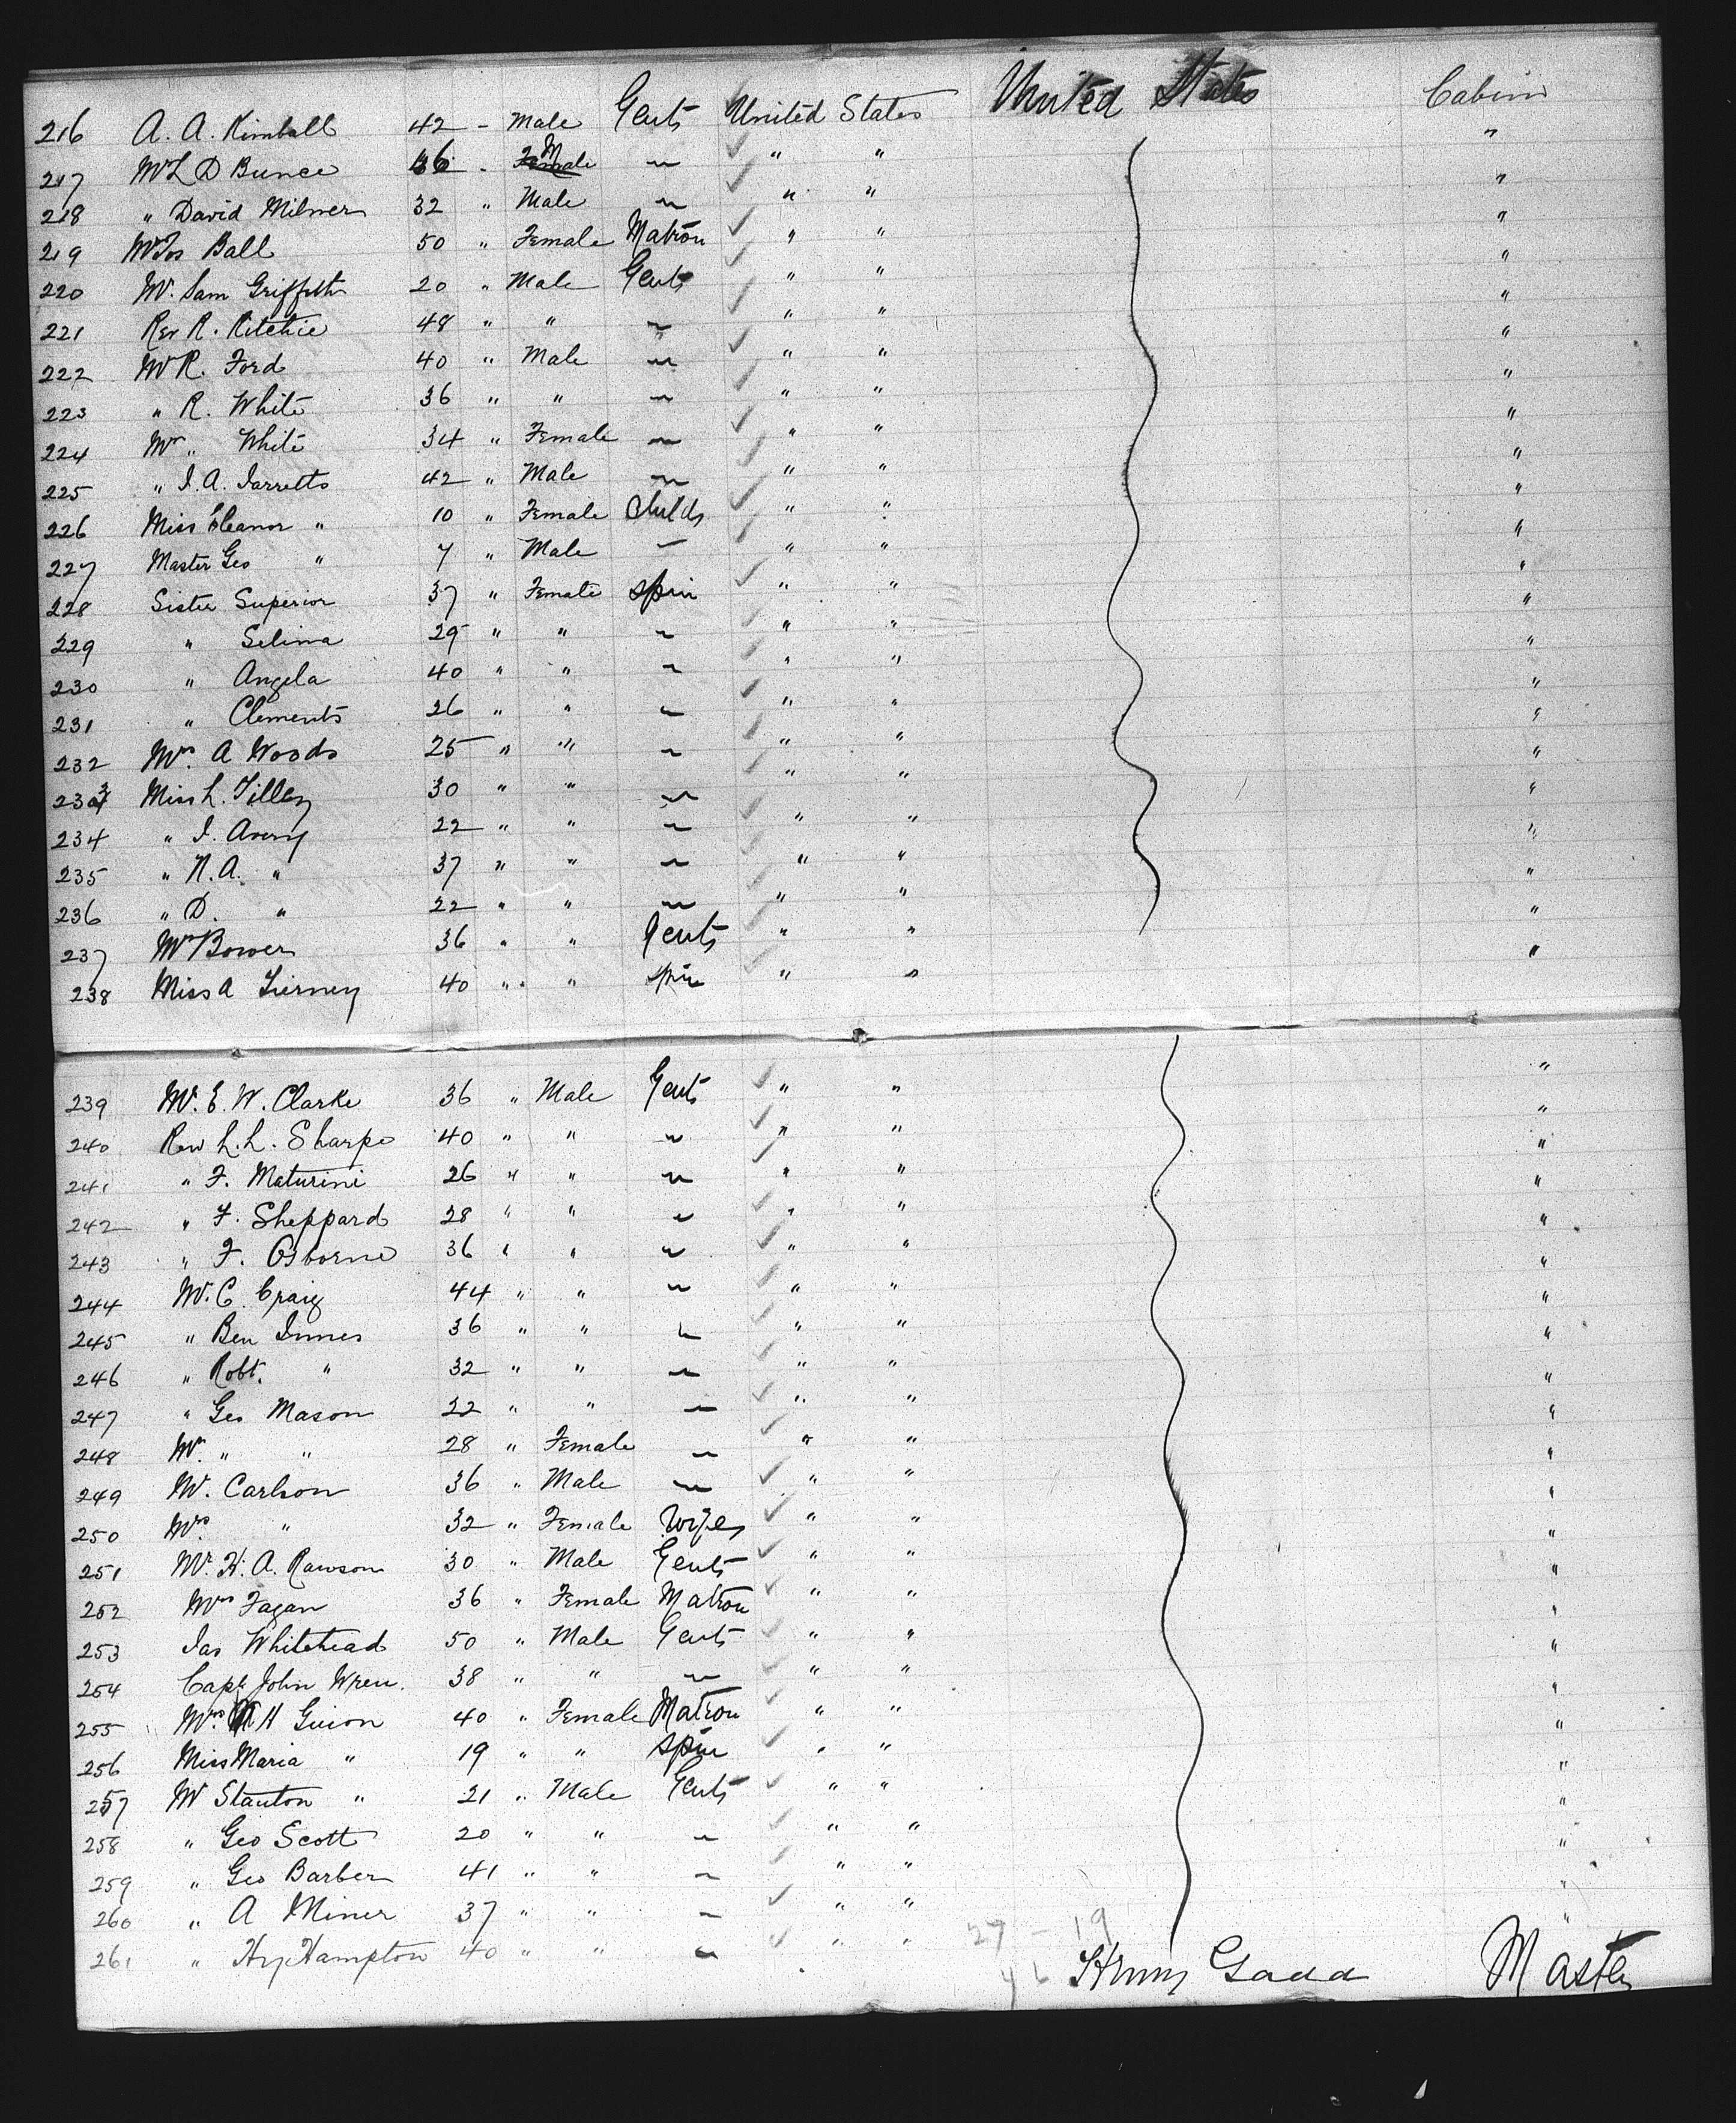 216 A. A. Kimball 42 - Male Gents United States United States Cabin
217 Mr L D Bunce 36 " Male " " " "
218 " David Milner 32 " Male " " " "
219 Mrs Jos Ball 50 " Female Matron " " "
220 Mr. Sam Griffith 20 " Male Gents " " "
221 Rev R. Ritchie 48 " " " " " "
222 Mr R. Ford 40 " Male " " " "
223 " R. White 36 " " " " " "
224 Mrs " White 34 " Female " " " "
225 " J. A. Jarretts 42 " Male " " " "
226 Miss Eleanor " 10 " Female Childs " " "
227 Master Geo " 7 " Male " " " "
228 Sister Superior 37 " Female Spin " " "
229 " Selina 29 " " " " " "
230 " Angela 40 " " " " " "
231 " Clements 26 " " " " " "
232 Mrs. A Woods 25 " " " " " "
233 Miss L. Tilley 30 " " " " " "
234 " J. Avery 22 " " " " " "
235 " N. A. " 37 " " " " " "
236 " D. " 22 " " " " " "
237 Mr Bower 36 " " Gents " " "
238 Miss A Tierney 40 " " Spin " " "
239 Mr. E. W. Clarke 36 " Male Gents " " "
240 Rev L. L. Sharpe 40 " " " " " "
241 " F. Maturini 26 " " " " " "
242 " F. Sheppard 28 " " " " " "
243 " F. Osborne 36 " " " " " "
244 Mr. C. Craig 44 " " " " " "
245 " Ben Innes 36 " " " " " "
246 " Robt. " 32 " " " " " "
247 " Geo Mason 22 " " " " " "
248 Mrs. " " 28 " Female " " " "
249 Mr. Carlson 36 " Male " " " "
250 Mrs. " 32 " Female Wifes " " "
251 Mr. H. A. Rawson 30 " Male Gents " " "
252 Mrs Fagan 36 " Female Matron " " "
253 Jas Whitehead 50 " Male Gents " " "
254 Capt John Wren. 38 " " " " " "
255 Mrs. W H Guion 40 " Female Matron " " "
256 Miss Maria " 19 " " Spin " " "
257 Mr Stanton " 21 " Male Gents " " "
258 " Geo Scott 20 " " " " " "
259 " Geo Barber 41 " " " " " "
260 " A Miner 37 " " " " " "
261 " Hy Hampton 40 " " " " "
27 - 19
46 Henry Gadd Master